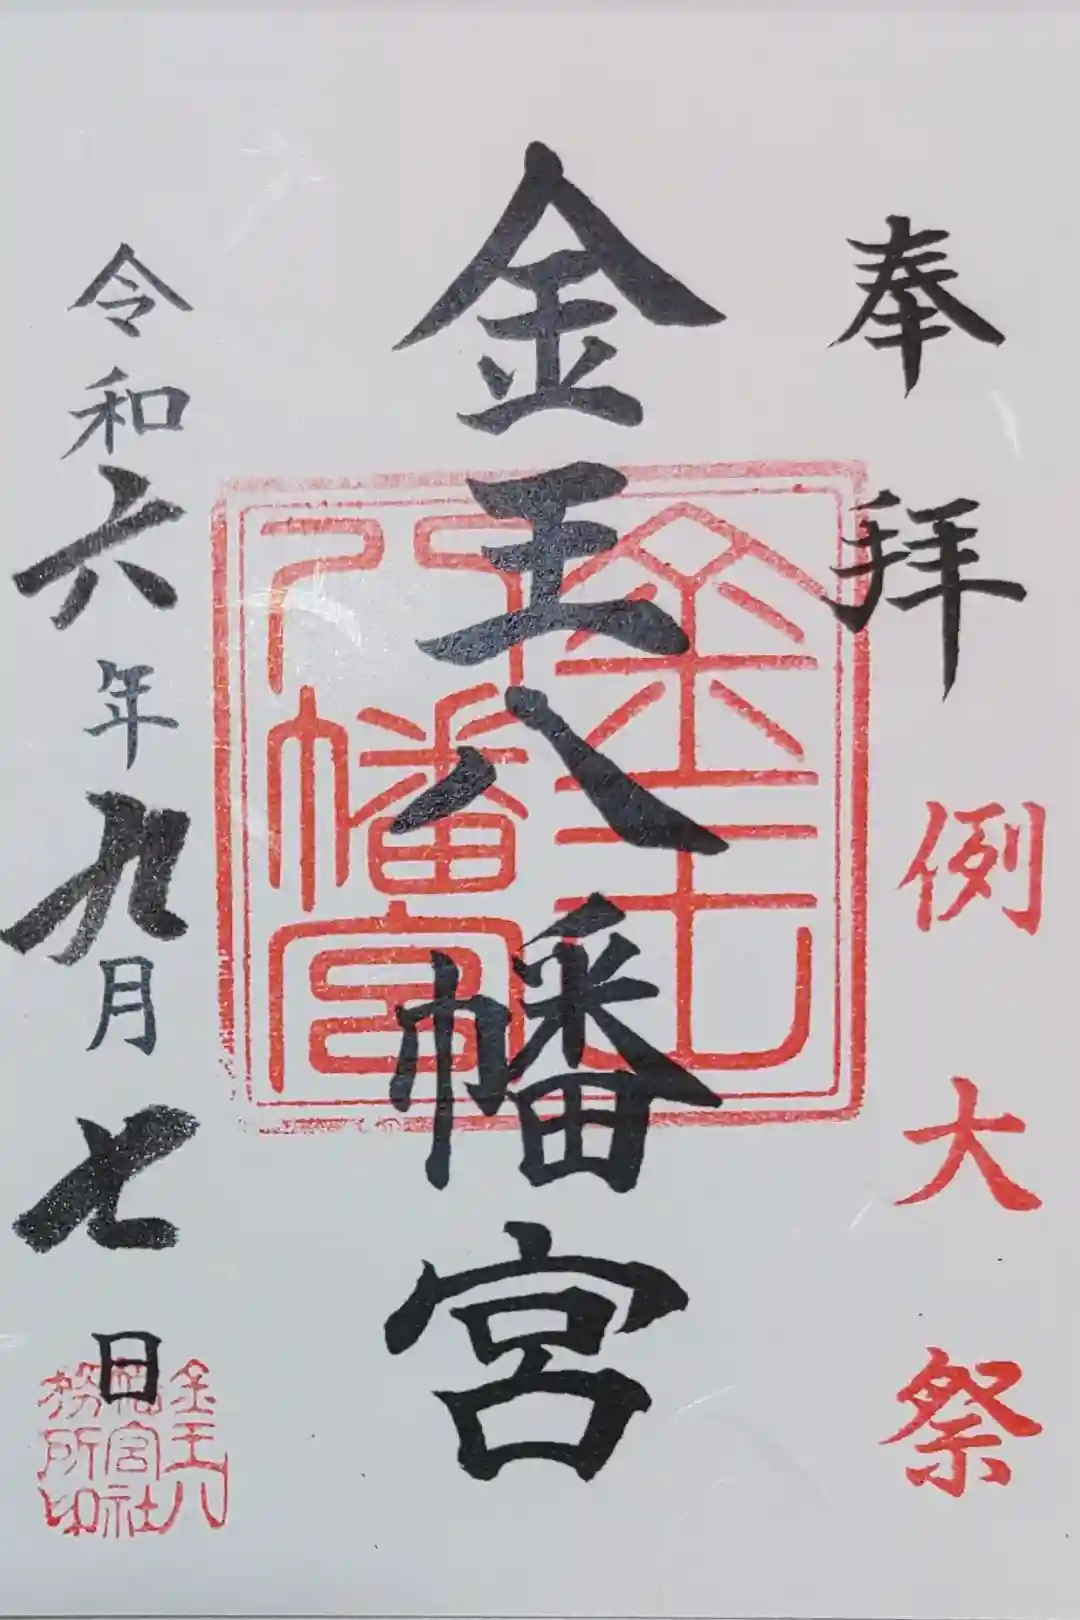 奉拝
例大祭
金王八幡宮
金王八幡宮
令和六年九月七日
金王八
幡宮社
務所印